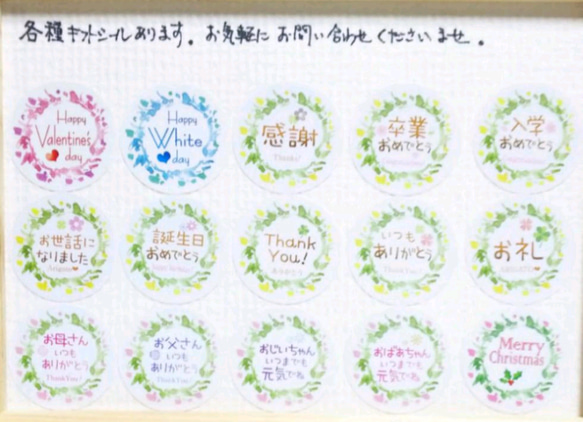 各種ギフトシールあります。お気軽にお問い合わせくださいませ。
Happy
Valentine's
day
Happy
White
day
感謝
Thanks!
卒業
おめでとう
入学
おめでとう
お世話に
なりました
Arigatou
誕生日
おめでとう
Thank
You!
ありがとう
いつも
ありがとう
Thank You!
お礼
お母さん
いつも
ありがとう
Thank You!
お父さん
いつも
ありがとう
Thank You!
おじいちゃん
いつまでも
元気でね
おばあちゃん
いつまでも
元気でね
Merry
Christmas